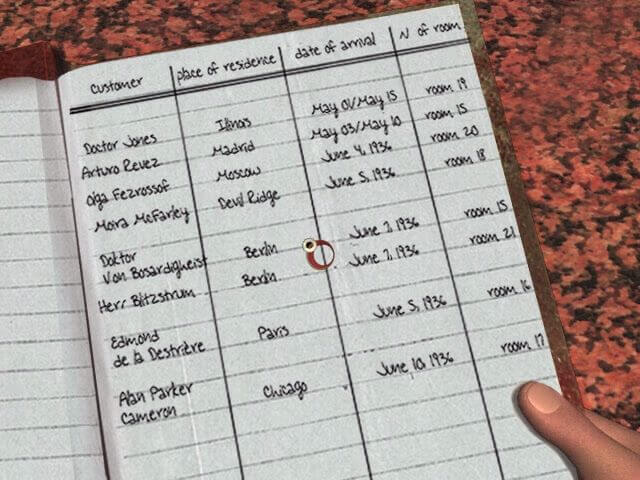 customer place of residence date of arrival N of room
Doctor Jones Illinois May 01/May 15 room 19
Arturo Revez Madrid May 03/May 10 room 15
Olga Fezrossof Moscow June 4, 1936 room 20
Moira McFarley Devil Ridge June 5, 1936 room 18
Doktor
Von Bosardigheist Berlin June 7, 1936 room 15
Herr Blitzstrum Berlin June 7, 1936 room 21
Edmond
de la Destrière Paris June 5, 1936 room 16
Alan Parker
Cameron Chicago June 10, 1936 room 17